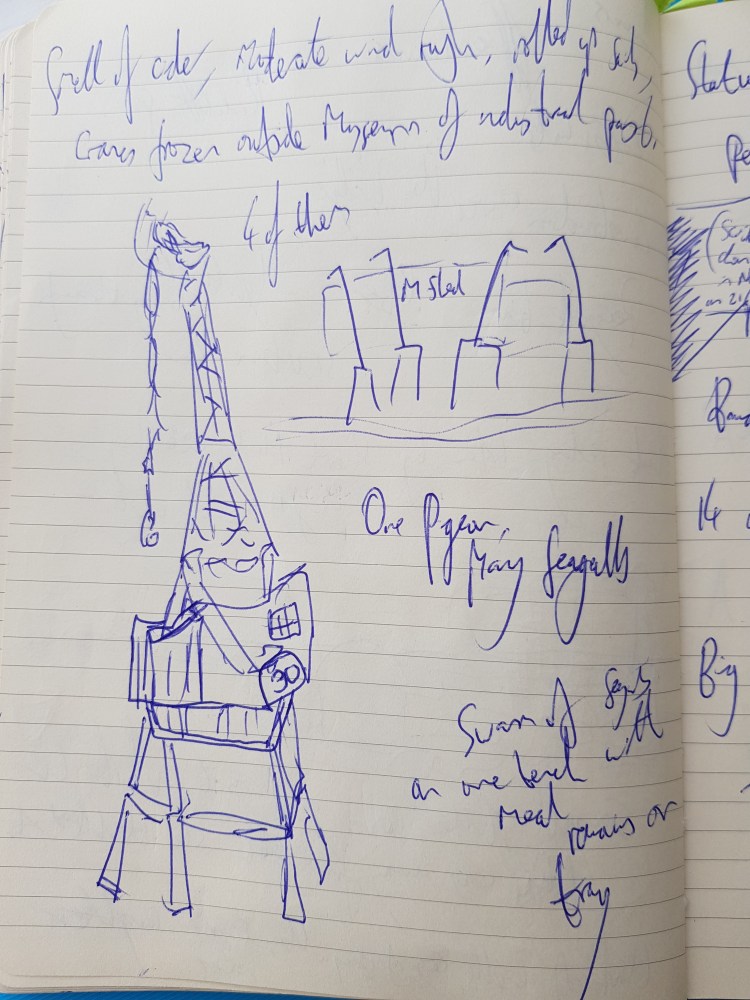 Smell of cider, Moderate wind high, rolled up sails,
Cranes frozen outside Museum of industrial past.
4 of them
M Shed
One Pigeon,
Many Seagulls
30
Swarm of Seagulls
on one bench with
meal remains on
tray
Statu
Pe
14
Big